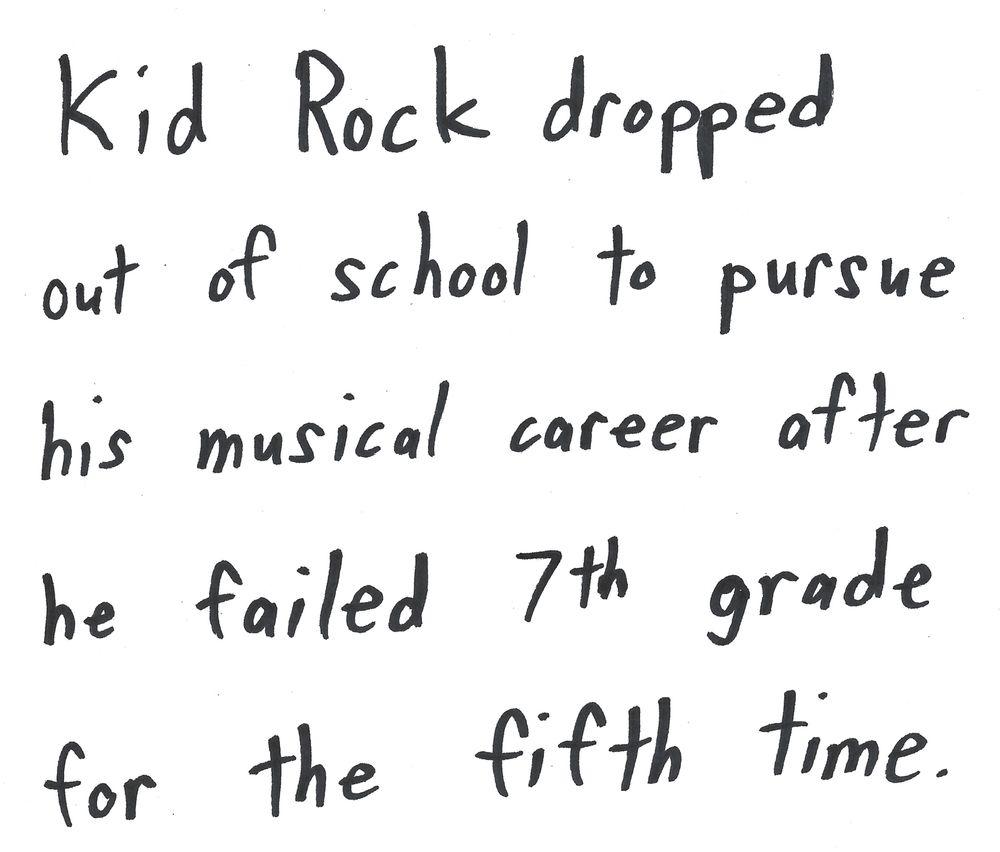 Kid Rock dropped
out of school to pursue
his musical career after
he failed 7th grade
for the fifth time.